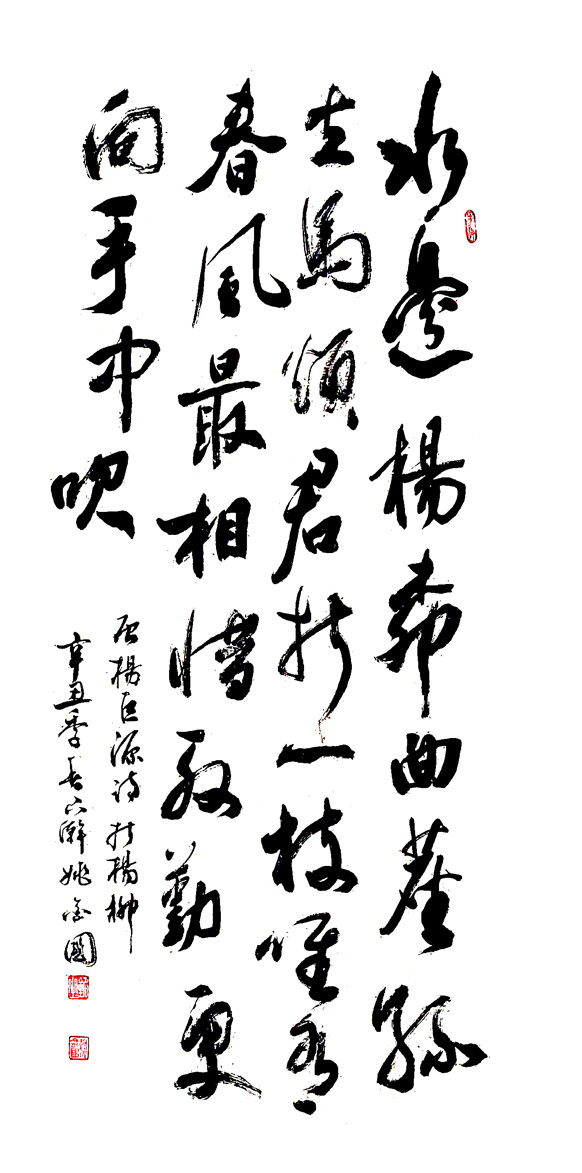 水邊楊柳曲塵絲
立馬煩君折一枝唯有
春風最相惜殷勤更
向手中吹
楊巨源詩折楊柳
辛丑季春下澣姚金國